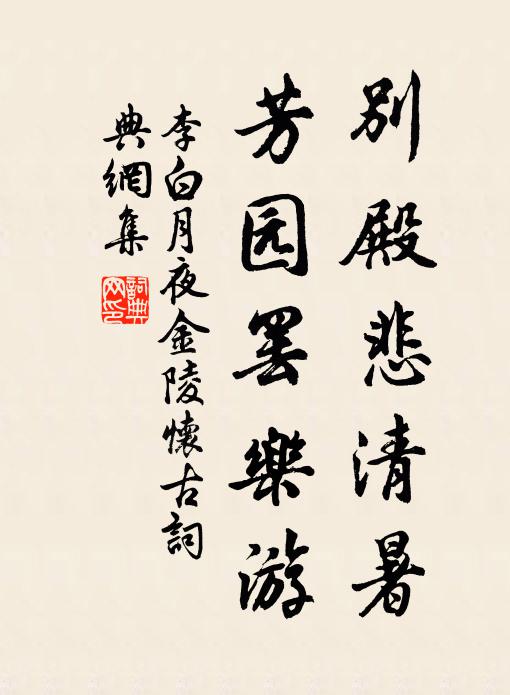 别殿悲清暑
芳园罢樂游
李白月夜金陵懷古詞
典網集
詞典
网印